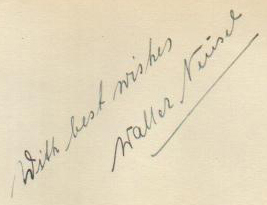 With best wishes
Walter Neusel